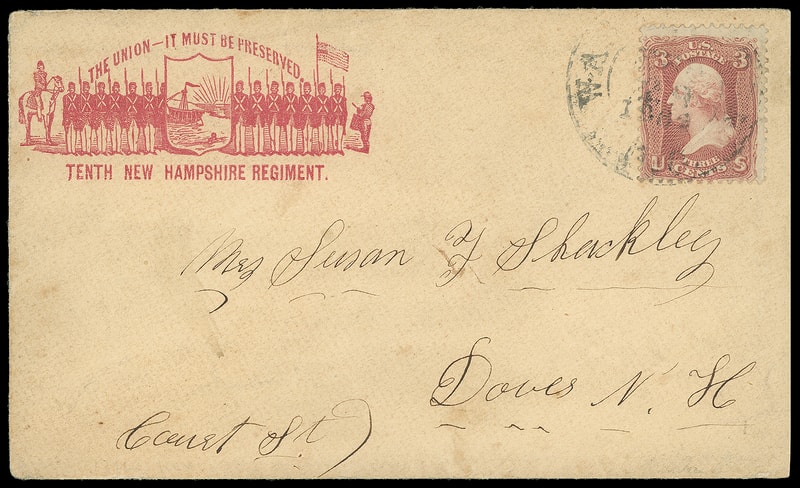 THE UNION—IT MUST BE PRESERVED.
TENTH NEW HAMPSHIRE REGIMENT.
U.S. POSTAGE
3 3
U THREE CENTS S
WA
Mrs Susan F Shackley
Dover N. H.
Court St